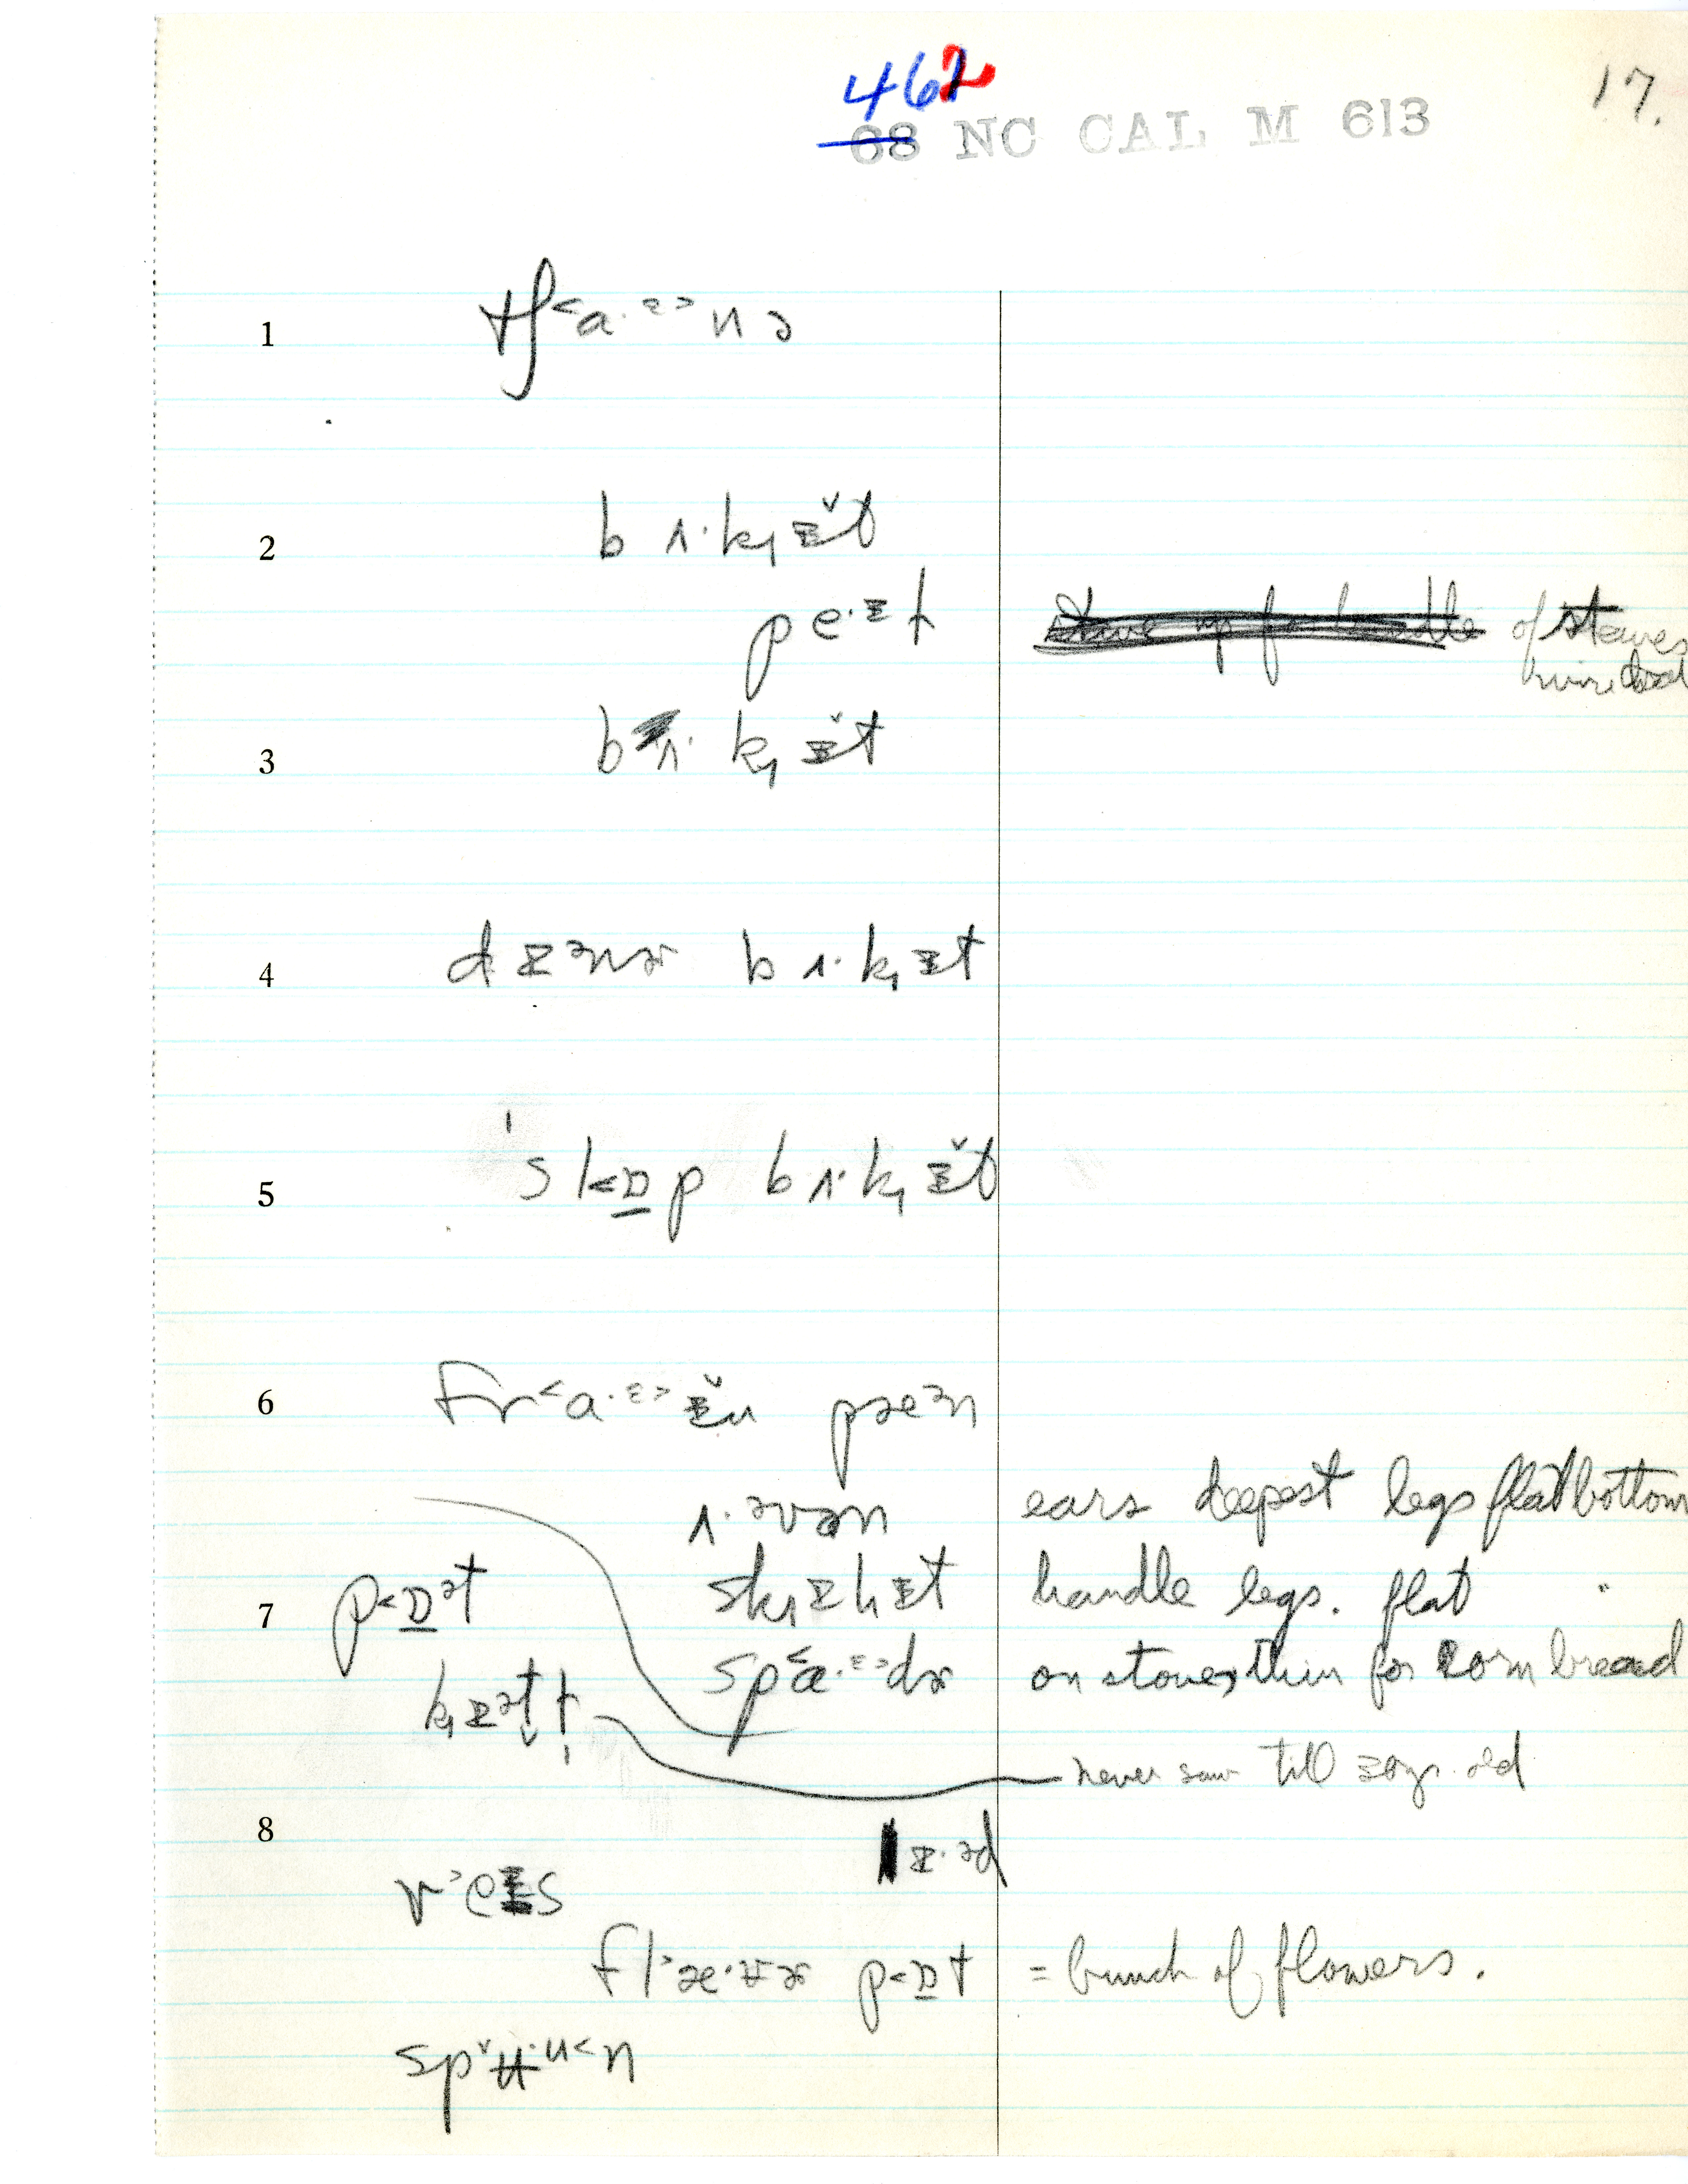 462
68 NC CAL M 613
17.
1 tʃ˂a·ᵋ˃nə
2 bʌ·k̟ᵻ̌t
pe·ᵻt of staves
3 bʌ·k̟ᵻ̌t
4 dᵻənɚ bʌ·k̟ᵻt
5 'sk˂ɒ̲p bʌ·k̟ᵻ̌t
6 fr˂a·ᵋ˃ᵻ̌n pæən
ʌ·əvən ears deepest legs flat bottom
7 p˂ɒ̲ət sk̟ᵻlᵻt handle legs. flat "
k̟ᵻətl sp˂a·ᵋ˃dɚ on stoves, thin for corn bread
never saw till 30 yr. old
8 lᵻ·əd
v˃eᵻs
fl˃æ·ʉɚ p˂ɒ̲t = bunch of flowers.
spˇʉ·u˂n